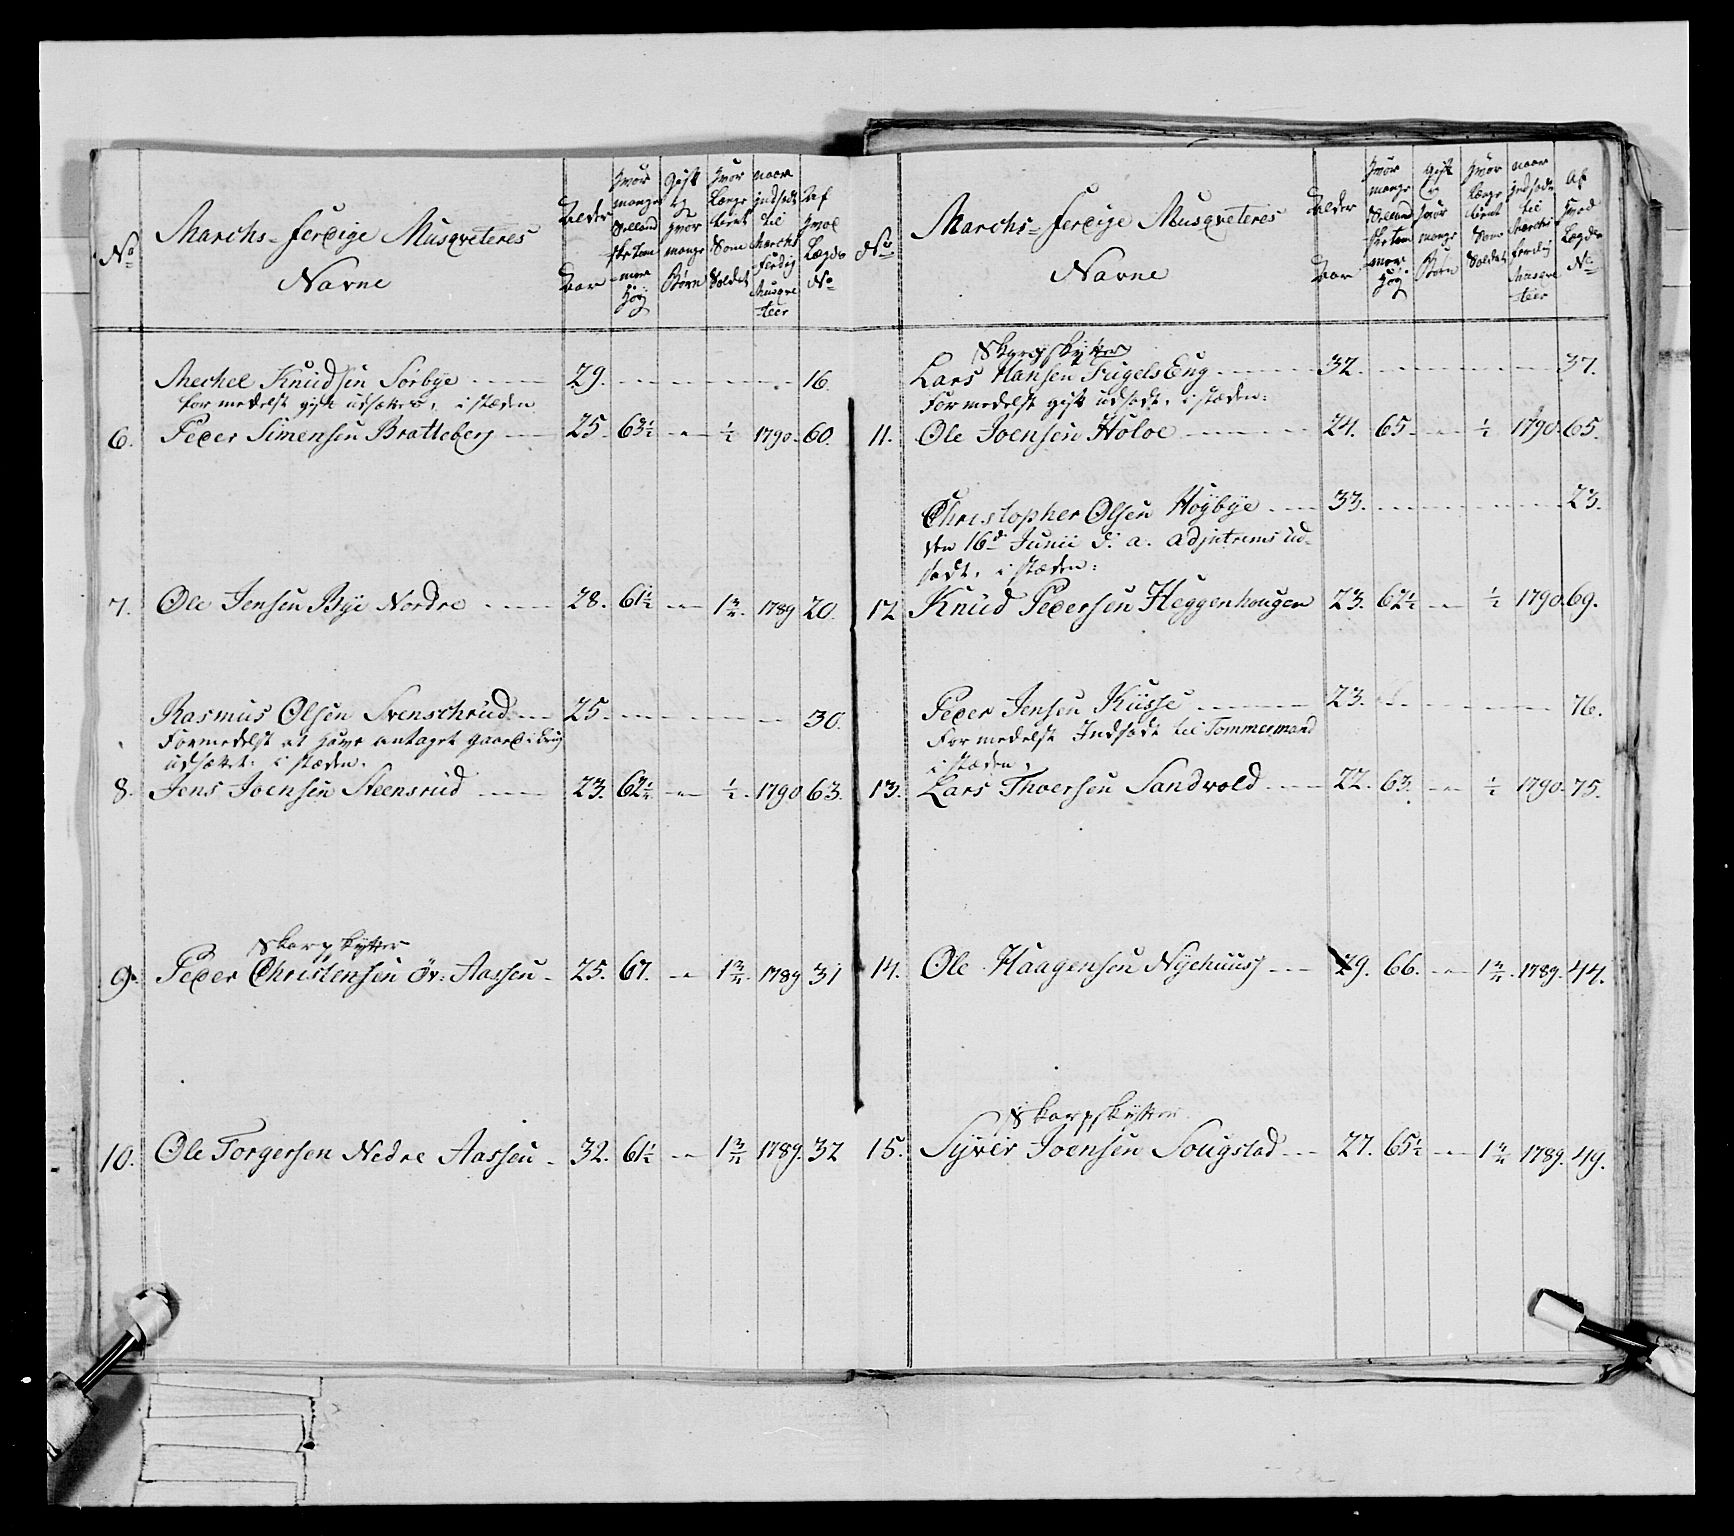 No
Marchs-ferdige Musqveteres
Navne
Alder
Aar
hvor
mange
Selland
ske tom
mer
høy
gift
og
hvor
mange
Børn
hvor
længe
tient
Som
Soldat
naar
indsadt
til
Marchs
ferdig
Musqve
teer
Af
hvad
Lægds
No
Mechel Knudsen Sørbye 29. 16
formedelst gift udsættes, i stæden
6. Peder Simensen Bratteberg 25. 63½ ½ 1790. 60.
7. Ole Jensen Bye Nordre 28. 61½ 1½ 1789 20.
Rasmus Olsen Svenschrud 25. 30.
Formedelst at have antaget gaard i brug
udsættet: i stæden.
8. Jens Joensen Steensrud 23. 62½ ½ 1790 63.
Skarpskytter
9. Peder Christensen Øv: Aassen 25. 67. 1½ 1789 31
10. Ole Torgersen Nedre Aassen 32. 61½ 1½ 1789. 32
No
Marchs-ferdige Musqveteres
Navne
Alder
Aar
hvor
mange
Selland
ske tom
mer
høy
gift
og
hvor
mange
Børn
hvor
længe
tient
Som
Soldat
naar
indsadt
til
Marchs
ferdig
Musqve
teer
Af
hvad
Lægds
No
Skarpskytter
Lars Hansen FugelsEng 32. 37.
Formedelst gift udsadt, i stæden:
11. Ole Joensen Holoe 24. 65 ½ 1790. 65.
Christopher Olsen Høybye 33. 23.
den 16d Junii d: a. adjutrums ud-
sadt, i stæden:
12 Knud Pedersen Heggenhougen 23. 62½ ½ 1790. 69.
Peder Jensen Kusse 23. 76.
Formedelst Indsadt til Tommermand
i stæden,
13. Lars Thoersen Sandvold 22. 63. ½ 1790. 75.
14. Ole Haagensen Nyehuus 29. 66. 1½ 1789. 44.
Skarpskytter
15. Syver Joensen Sougstad 27. 65½ 1½ 1789. 49.